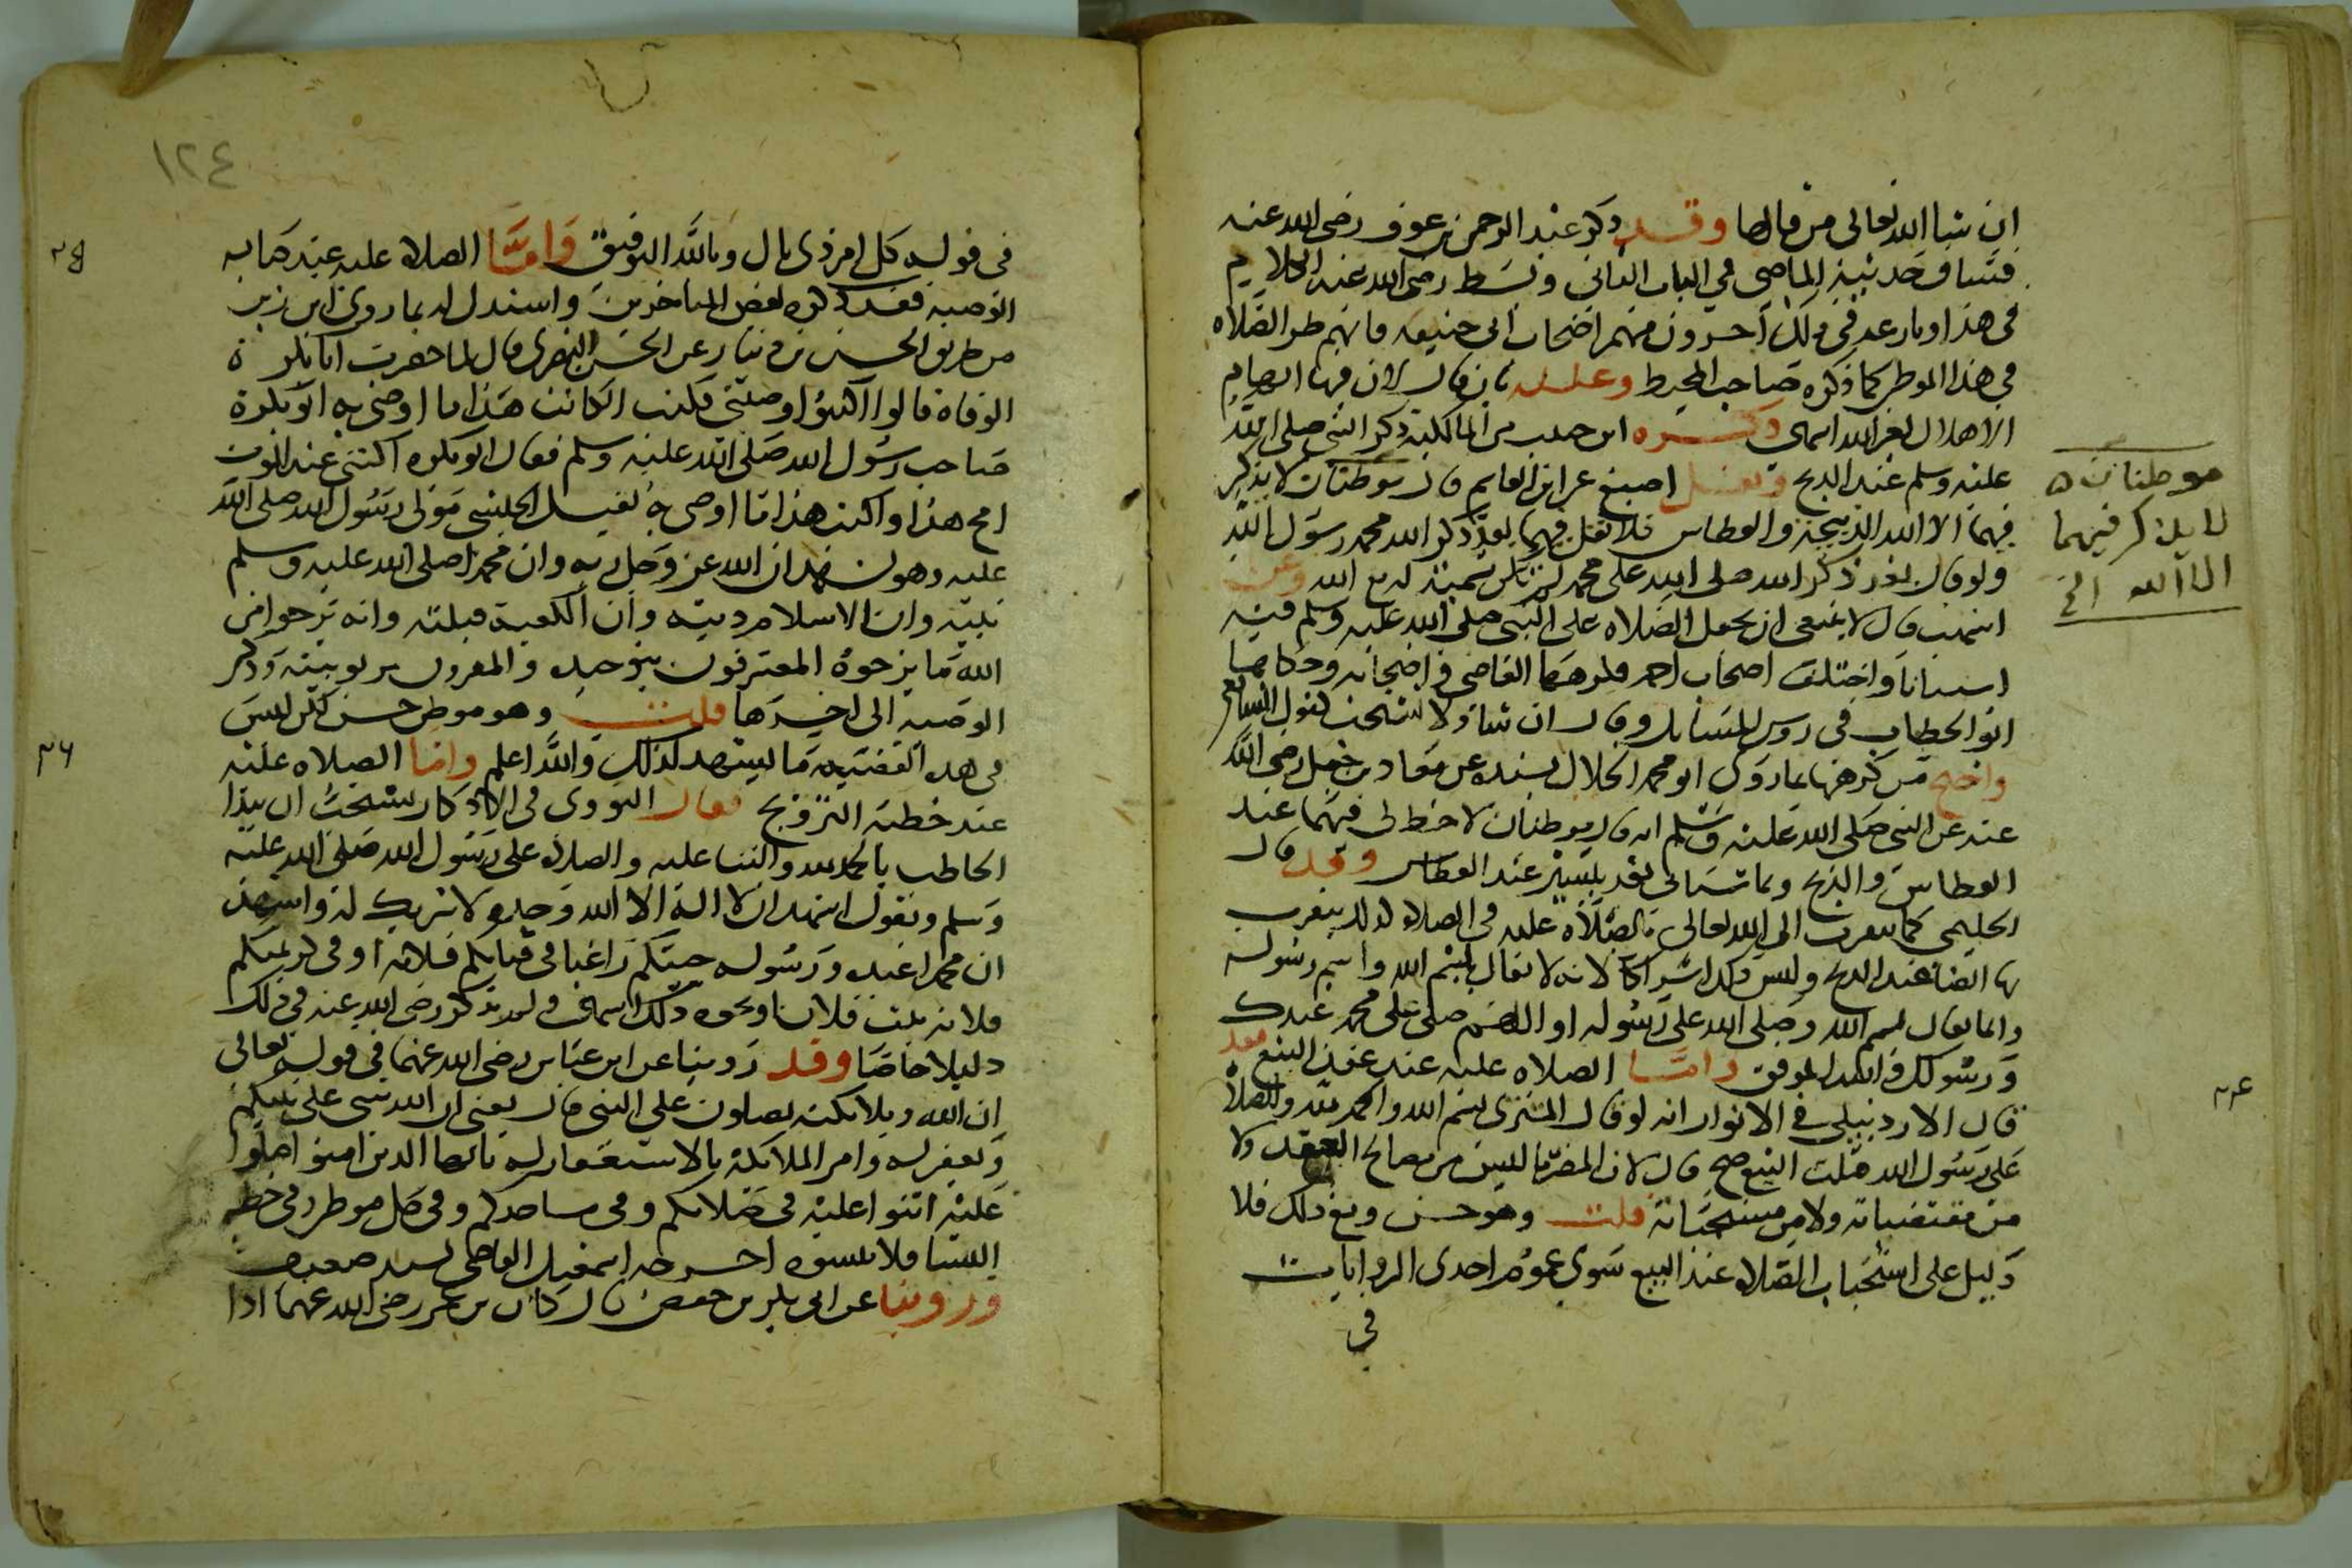 ان شا الله تعالى من قالها وقد ذكر عبد الرحمن بن عوف رضي الله عنه
فساق حديثه الماضي في الباب الثاني وبسط رضي الله عنه الكلام
في هذا ونازعه في ذلك آخرون منهم اصحاب ابي حنيفه فانهم كرهوا الصلاه
في هذا الموطن كما ذكره صاحب المحيط وعلله بان قال لان فيه ايهام
الاهلال لغير الله انتهى وكره ابن حبيب من المالكية ذكر النبي صلى الله
عليه وسلم عند الذبح ونقل اصبغ عن ابن القاسم قال موطنان لا يذكر
فيهما الا الله الذبيحة والعطاس فلا تقل فيهما بعد ذكر الله محمد رسول الله
ولو قال بعد ذكر الله صلى الله على محمد لم يكن تسمية له مع الله وعن
اشهب قال لا ينبغي ان يجعل الصلاه على النبي صلى الله عليه وسلم فيه
استنانا واختلف اصحاب احمد فكرهها القاضي واصحابه وحكاها
ابو الخطاب في روس المسايل وقال ان شا ولا تستحب كقول الشافعي
واحتج من كرهها بما روى ابو محمد الخلال بسنده عن معاذ بن جبل رضي الله
عنه عن النبي صلى الله عليه وسلم انه قال موطنان لا حظ لي فيهما عند
العطاس والذبح وما سياتي بعد بيسير عند العطاس وقد قال
الحليمي كما يتقرب الى الله تعالى بالصلاة عليه في الصلاة كذلك يتقرب
بها ايضا عند الذبح وليس ذلك اشراكا لانه لا يقال بسم الله واسم رسوله
وانما يقال بسم الله وصلى الله على رسوله او اللهم صلى على محمد عبدك
ورسولك والله الموفق واما الصلاه عليه عند عقد البيع فقد
قال الاردبيلي في الانوار انه لو قال المشتري بسم الله والحمد لله والصلاة
على رسول الله قبلت البيع صح قال لان المضر ما ليس من مصالح العقد ولا
من مقتضياته ولا من مستحباته قلت وهو حسن ومع ذلك فلا
دليل على استحباب الصلاه عند البيع سوى عموم احدى الروايات
في
موطنان
لا يذكر فيهما
الا الله الخ
١٢٤
في قوله كل امر ذي بال وبالله التوفيق واما الصلاة عليه عند كتابه
الوصيه فقد ذكره بعض المتاخرين واستدل له بما روي ابن زبر
من طريق الحسن بن دينار عن الحسن البصري قال لما حضرت ابا بكرة
الوفاة قالوا اكتبوا وصيتي فكتب الكاتب هذا ما اوصى به ابو بكرة
صاحب رسول الله صلى الله عليه وسلم فقال ابو بكره اكتنى عند الموت
امح هذا واكتب هذا ما اوصى به نفيع الحبشي مولى رسول الله صلى الله
عليه وهو يشهد ان الله عز وجل ربه وان محمدا صلى الله عليه وسلم
نبيه وان الاسلام دينه وان الكعبة قبلته وانه يرجوا من
الله ما يرجوه المعترفون بتوحيده والمقرون بربوبيته وذكر
الوصيه الى اخرها قلت وهو موطن حسن لكن ليس
في هذه القضيه ما يشهد لذلك والله اعلم واما الصلاه عليه
عند خطبة التزويج فقال النووي في الاذكار يستحب ان يبدا
الخاطب بالحمد لله والثنا عليه والصلاه على رسول الله صلى الله عليه
وسلم ويقول اشهد ان لا اله الا الله وحده لا شريك له واشهد
ان محمدا عبده ورسوله جيتكم راغبا في فتاتكم فلانه او في كريمتكم
فلانه بنت فلان او نحو ذلك انتهى ولم يذكر رضي الله عنه في ذلك
دليلا خاصا وقد روينا عن ابن عباس رضي الله عنهما في قوله تعالى
ان الله وملايكته يصلون على النبي قال يعني ان الله يثني على نبيكم
ويغفر له وامر الملايكة بالاستغفار له يا ايها الذين امنوا صلوا
عليه اثنوا عليه في صلاتكم وفي مساجدكم وفي كل موطن وفي خطبة
النسا فلا تنسوه اخرجه اسمعيل القاضي بسند ضعيف
وروينا عن ابي بكر بن حفص قال كان بن عمر رضي الله عنهما اذا